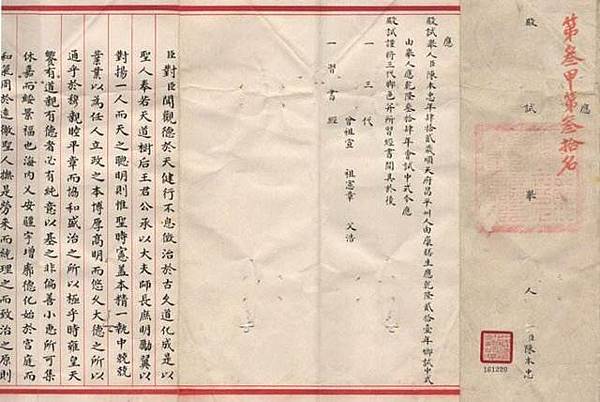 第叁甲第叁拾名
應
殿試舉人臣陳本忠
161220
應
殿試舉人臣陳本忠年肆拾貳歲順天府昌平州人由廩膳生應乾隆貳拾壹年鄉試中式
由舉人應乾隆叁拾肆年會試中式今應
殿試謹將三代脚色并所習經書開具於後
一三代
曾祖宣 祖憲章 父浩
一習書經
臣對臣聞觀德於天健行不息徵治於古久道化成是以
聖人奉若天道樹后王君公承以大夫師長庶明勵翼以
對揚一人而天之聰明則惟聖時憲蓋本精一執中兢兢
業業以為任人立政之本博厚高明而悠久大德之所以
通乎於穆親睦平章而協和盛治之所以極乎時雍皇天
饗有道親有德者必有純意以基之非偏善小惠所可集
休嘉而綏景福也海内乂安疆宇增廓德化始於宫庭而
和氣周於遠徼聖人撫是勞來而統理之而致治之原則